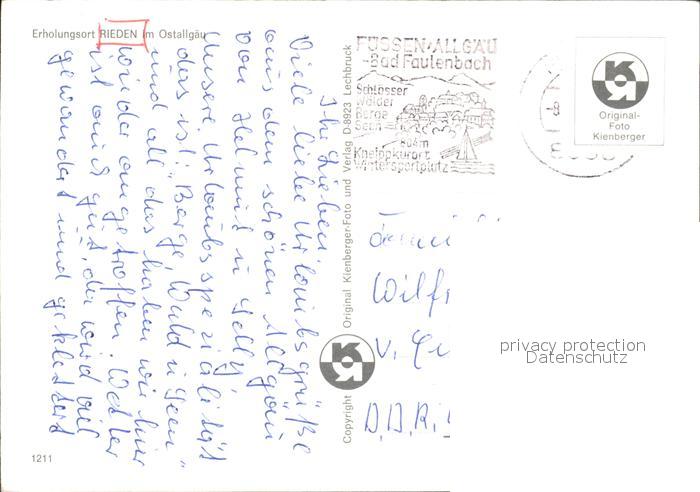 Erholungsort RIEDEN im Ostallgäu
Ihr Lieben,
Viele liebe Urlaubsgrüße
aus dem schönen Allgäu
von Helmut u.
Unsere Urlaubsspezialität
das ist: "Berge, Wald u. Seen"
und all das haben wir hier
wieder angetroffen. Wetter
ist auch gut, da wird viel
gewandert und geklettert
1211
Copyright Original Kienberger-Foto und Verlag D-8923 Lechbruck
FÜSSEN-ALLGÄU
-Bad Faulenbach
Schlösser
Wälder
Berge
Seen
804m
Kneippkurort
Wintersportplatz
Original-
Foto
Kienberger
Wilf
privacy protection
Datenschutz